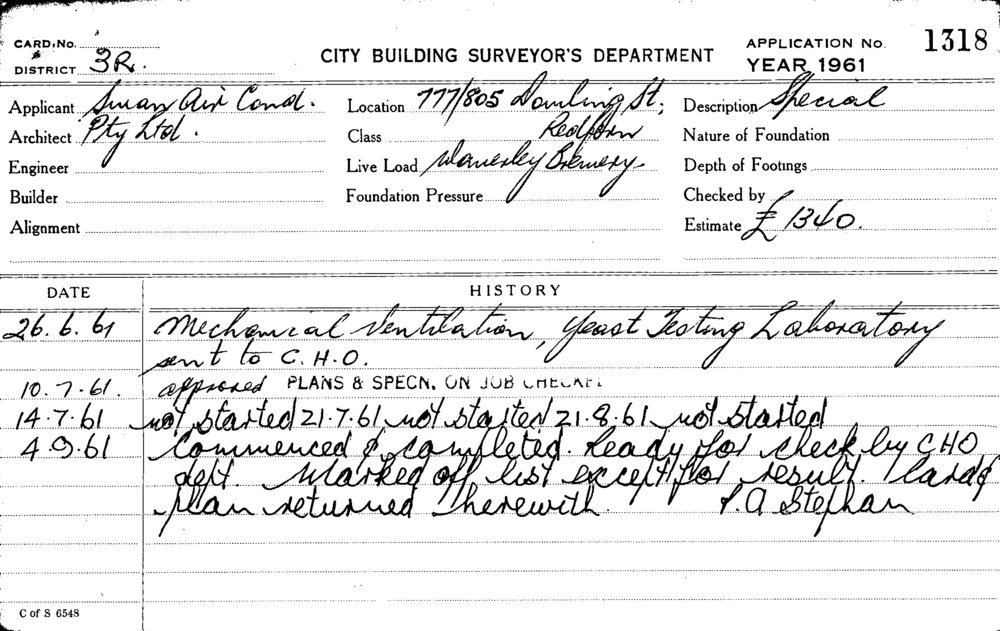 CARD No.
DISTRICT 3R.
CITY BUILDING SURVEYOR'S DEPARTMENT
APPLICATION No. 1318
YEAR 1961
Applicant Swan Air Cond.
Architect Pty Ltd.
Engineer
Builder
Alignment
Location 777/805 Dowling St;
Class Redfern
Live Load Waverley Brewery.
Foundation Pressure
Description Special
Nature of Foundation
Depth of Footings
Checked by
Estimate £1340.
DATE HISTORY
26.6.61 Mechanical Ventilation, Yeast Testing Laboratory
sent to C.H.O.
10.7.61. approved PLANS & SPECN. ON JOB CHECKED
14.7.61 not started 21.7.61 not started 21.8.61 not started
4.9.61 Commenced & completed. Ready for check by CHO
dept. Marked off list except for result. Card &
plan returned herewith. P.A Stephan
C of S 6548